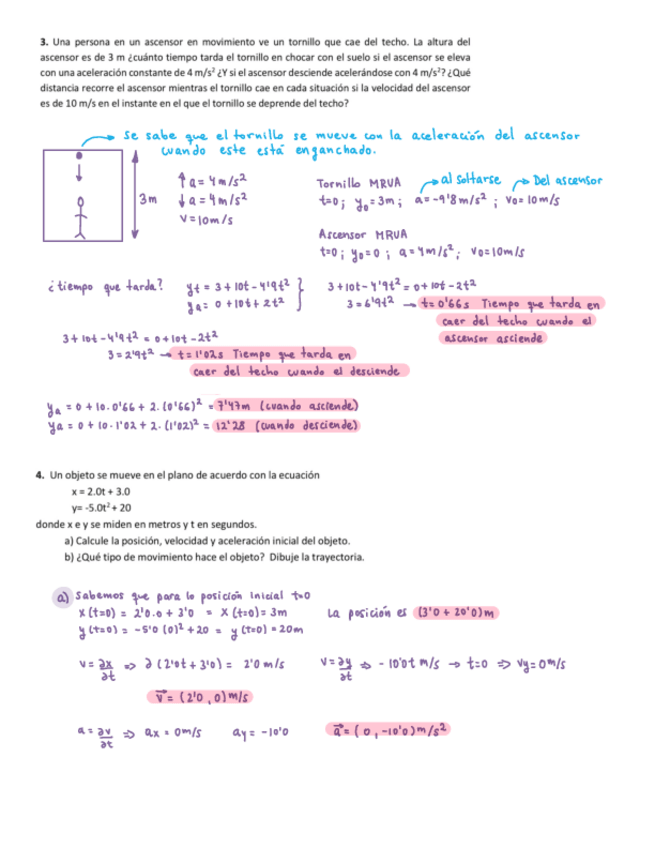 3. Una persona en un ascensor en movimiento ve un tornillo que cae del techo. La altura del
ascensor es de 3 m ¿cuánto tiempo tarda el tornillo en chocar con el suelo si el ascensor se eleva
con una aceleración constante de 4 m/s² ¿Y si el ascensor desciende acelerándose con 4 m/s²? ¿Qué
distancia recorre el ascensor mientras el tornillo cae en cada situación si la velocidad del ascensor
es de 10 m/s en el instante en el que el tornillo se deprende del techo?
Se sabe que el tornillo se mueve con la aceleración del ascensor
cuando este está enganchado.
3m
↑ a = 4m/s²
↓ a = 4m/s²
v = 10m/s
Tornillo MRUA → al soltarse → Del ascensor
t=0; y₀=3m; a=-9'8m/s²; v₀=10m/s
Ascensor MRUA
t=0; y₀=0; a=4m/s²; v₀=10m/s
¿tiempo que tarda?
yt = 3+10t-4'9t²
ya = 0+10t+2t²
3+10t-4'9t² = 0+10t-2t²
3=6'9t² → t=0'66s Tiempo que tarda en
caer del techo cuando el
ascensor asciende
3+10t-4'9t² = 0+10t-2t²
3=2'9t² → t=1'02s Tiempo que tarda en
caer del techo cuando el desciende
ya = 0+10·0'66+2·(0'66)² = 7'47m (cuando asciende)
ya = 0+10·1'02+2·(1'02)² = 12'28 (cuando desciende)
4. Un objeto se mueve en el plano de acuerdo con la ecuación
x = 2.0t + 3.0
y= -5.0t² + 20
donde x e y se miden en metros y t en segundos.
a) Calcule la posición, velocidad y aceleración inicial del objeto.
b) ¿Qué tipo de movimiento hace el objeto? Dibuje la trayectoria.
a) Sabemos que para lo posición inicial t=0
x(t=0) = 2'0·0+3'0 = x(t=0)=3m
y(t=0) = -5'0(0)²+20 = y(t=0)=20m
La posición es (3'0+20'0)m
v=∂x/∂t ⇒ ∂(2'0t+3'0) = 2'0m/s
v=∂y/∂t ⇒ -10'0t m/s → t=0 ⇒ vy=0m/s
v⃗=(2'0,0)m/s
a=∂v/∂t ⇒ ax=0m/s ay=-10'0
a⃗=(0,-10'0)m/s²